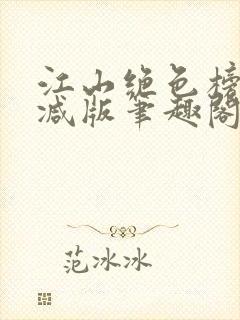 江山绝色榜
减版笔趣阁
范冰冰